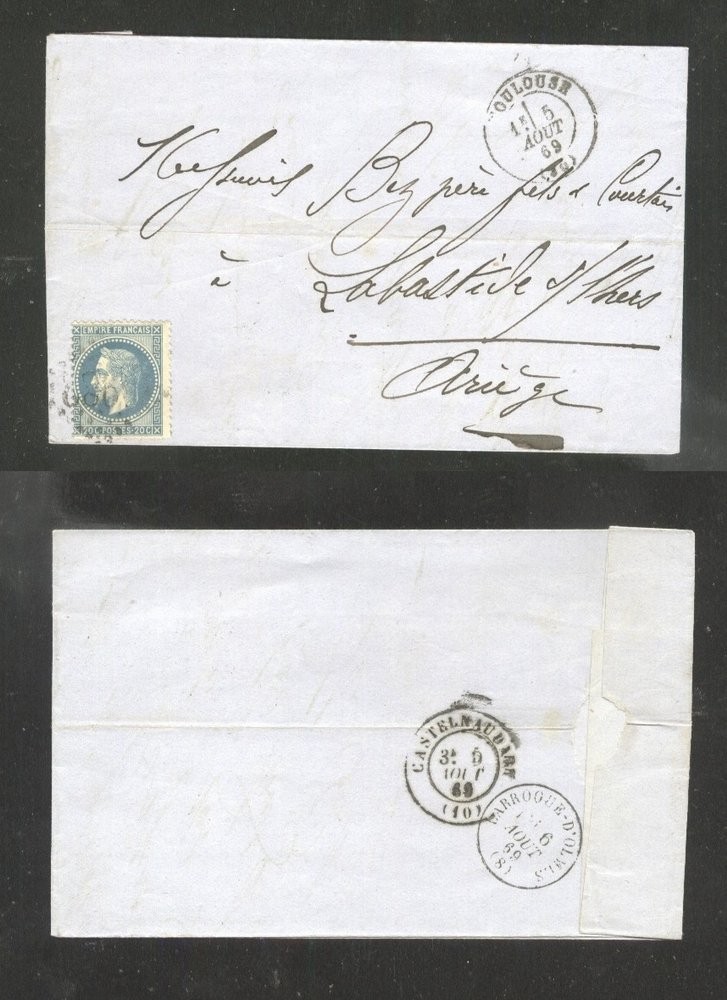 TOULOUSE
1E 5
AOUT
69
Messieurs Bez père fils & Courtois
à Labastide s/ l'hers
Ariège
EMPIRE FRANCAIS
20 C. POSTES 20 C.
CASTELNAUDARY
3E 5
AOUT
69
(10)
LARROQUE-D'OLMES
6
AOUT
69
(8)